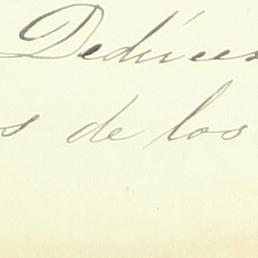 Dedúces
s de los